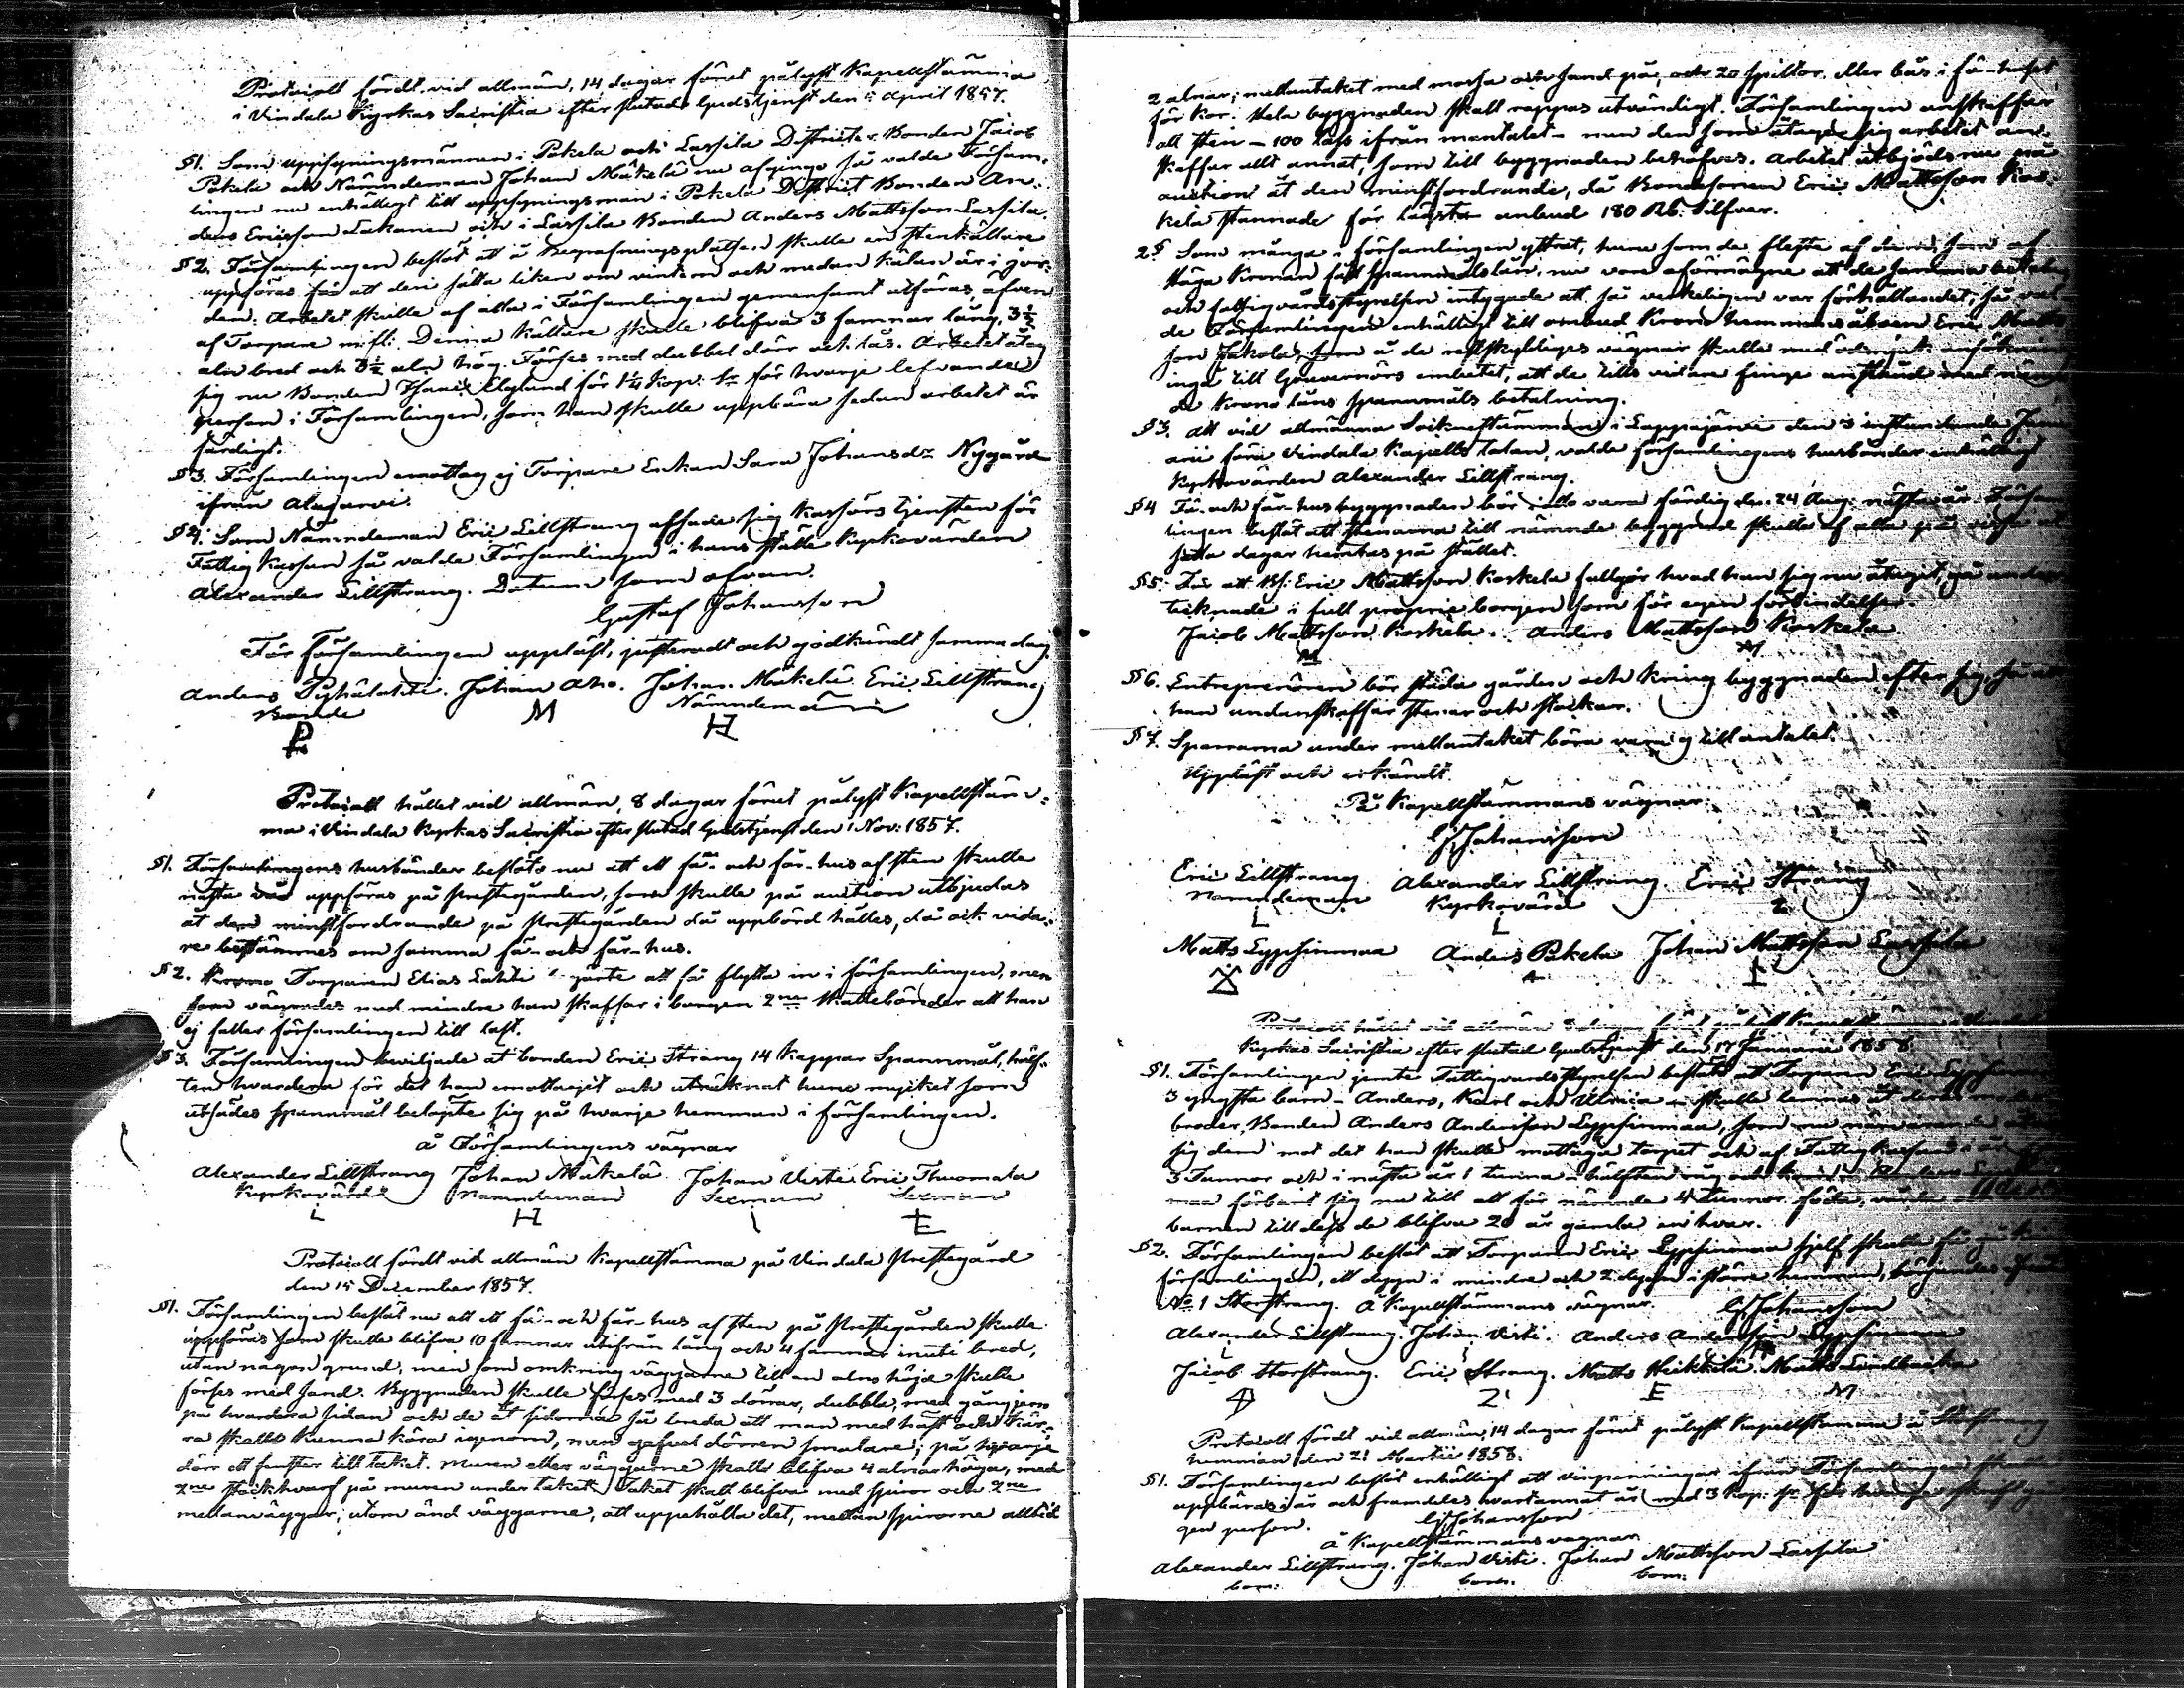 Protocoll fördt vid allmän, 14 dagar förut pålyst Kapellstämma
i Vindala Kyrkas Sacristia efter slutad Gudstjenst den April 1857.
§1. Som uppsyningsmännen i Pokela och Lassila Districter Bonden Jacob
Pokela och Nämndeman Johan Mäkelä nu afgingo så valde Församlingen
nu enhälligt till uppsyningsman i Pokela District Bonden An-
ders Ericsson Lakanen och i Lassila Bonden Anders Mattsson Lassila.
§2. Församlingen beslöt att å Begrafningsplatsen skulle en stenkällare
uppföras för att deri sätta liken om vintern och medan kälan är i jor-
den. Arbetet skulle af alla i Församlingen gemensamt utföras, äfven
af Torpare m.fl. Denna källare skulle blifva 3 famnar lång, 3½
aln bred och 3½ aln hög. Förses med dubbel dörr och lås. Arbetet åtog
sig nu Bonden Elglund för 1¼ kop. Sr för hvarje lefvande
person i Församlingen, som han skulle uppbära sedan arbetet är
färdigt.
§3. Församlingen emottog ej Torpare Enkan Sara Johansdr Nygård
ifrån Alajärvi.
§4. Som Nämndeman Eric Lillstrang afsade sig Kassörs tjensten för
Fattig Kassan så valde Församlingen i hans ställe Kyrkovärden
Alexander Lillstrang. Datum som ofvan.
Gustaf Johansson
För Församlingen uppläst, justeradt och godkändt samma dag.
Anders Pyhälahti. Johan Aho. Johan Mäkelä Eric Lillstrang
Bonde Nämndemän
P M H
Protocoll hållet vid allmän, 8 dagar förut pålyst Kapellstäm-
ma i Vindala Kyrkas Sacristia efter slutad Gudstjenst den 1 Nov: 1857.
§1. Församlingens husbönder beslöto nu att ett fä- och får-hus af sten skulle
nästa vår uppföras på Prestegården, som skulle på auction utbjudas
åt den minstfordrande på Prestegården då uppbörd hålles, då ock vida-
re bestämmes om samma fä- och får-hus.
§2. Krono Torparen Elias Lahti gärte att få flytta in i församlingen, men
som vägrades med mindre han skaffar i borgen 2ne Skattebönder att han
ej faller församlingen till last.
§3. Församlingen beviljade åt bonden Eric Strang 14 Kappar Spannmål, hälf-
ten hvardera för det han emottagit och uträknat huru mycket som
utsädes spannmål belöpte sig på hvarje hemman i församlingen.
å Församlingens vägnar
Alexander Lillstrang Johan Mäkelä Johan Verti Eric Thuomala
Kyrkovärd Nämndeman Sexman Sexman
L H E
Protocoll fördt vid allmän Kapellstämma på Vindala Prestegård
den 15 December 1857.
§1. Församlingen beslöt nu att ett fä- och får-hus af sten på Prestegården skulle
uppföras som skulle blifva 10 famnar utifrån lång och 4 famnar inuti bred,
utan någon grund, men som omkring väggarne till en alns höjd skulle
förses med sand. Byggnaden skulle förses med 3 dörrar, dubbla, med gångjern
på hvardera sidan och de åt sidorna så breda att man med häst och kär-
ra skulle kunna köra igenom, men gafvel dörren smalare; på hvarje
dörr ett fenster till taket. Muren eller väggarne skulle blifva 4 alnar höga, med
2ne stockhvarf på muren under taket. Taket skall blifva med spiror och 2ne
mellanväggar, utom änd väggarne, att uppehålla det, mellan spirorne alltid
2 alnar; mellantaket med mossa och sand på, och 20 spiltor eller bås i fä-huset
för kor. Hela byggnaden skall rappas utvändigt. Församlingen anskaffar
all sten – 100 lass ifrån mantalet – men den som åtager sig arbetet an-
skaffar allt annat, som till byggnaden behöfves. Arbetet utbjöds nu på
auction åt den minstfordrande, då Bondesonen Eric Mattsson Kos-
kela stannade för lägsta anbud 180 Rb: Silfver.
2§ Som många i församlingen yttrat, huru som de flesta af dem, som af
Höga Kronan fått spannmålslån, nu voro oförmögne att de samma betala,
och fattigvårdsstyrelsen intygade att så verkeligen var förhållandet, så val-
de Församlingen enhälligt till ombud Krono hemmans åboen Eric Matts
son Jakola, som å de nödskyldiges vägnar skulle med ödmjuk ansökning
ingå till Gouvernörs embetet, att de tills vidare finge anstånd med
de Krono låns spannmåls betalning.
§3. Att vid allmänna Sockenstämman i Lappajärvi den 3 instundande
arii föra Vindala Kapells talan, valde församlingens husbönder enhälligt
Kyrkovärden Alexander Lillstrang.
§4 Fä- och får-hus byggnaden bör vara färdig den 24 Aug: nästa år. Försam
lingen beslöt att stenarna till nämnde byggnad skulle af alla på vissa
dagar hemtas på stället.
§5. För att Bs: Eric Mattsson Koskela fullgör hvad han sig nu åtagit, gå under
tecknade i full proprie borgen som för egen förbindelse.
Jacob Mattsson Koskela. Anders Mattsson Koskela
M M
§6. Entreprenören bör städa gården och kring byggnaden efter sig, så att
han undanskaffar stenar och stockar.
§7. Sparrarna under mellantaket böra vara 9 till antalet.
Uppläst och erkändt.
På Kapellstämmans vägnar
G Johansson
Eric Lillstrang Alexander Lillstrang Eric Strang
Nämndeman Kyrkovärd
L L Z
Matts Lyysinmaa Anders Pokela Johan Mattsson Lassila
Protocoll hållet vid allmän 8 dagar
Kyrkas Sacristia efter slutad Gudstjenst den 17 Januarii 1858.
§1. Församlingen jemte Fattigvårdsstyrelsen beslöto att Torparen Eric
3 yngsta barn – Anders, Karl och Ulrica – skulle lemnas åt
broder, Bonden Anders Andersson Leppsinmaa, som nu
sig dem mot det han skulle mottaga torpet och af Fattig Kassan i år
3 Tunnor och i nästa år 1 tunna hälften råg och
maa förband sig nu till att för nämnde 4 Tunnor föda, vårda
barnen till dess de blifva 20 år gamla enhvar.
§2. Församlingen beslöt att Torparen Eric Leppsinmaa sjelf skulle
församlingen, ett dygn i mindre och 2 dygn i större hemman,
No 1 Storstrang. Å Kapellstämmans vägnar. G Johansson
Alexander Lillstrang. Johan Verti. Anders Andersson Leppsinmaa
Jacob Storstrang. Eric Strang. Matts Heikkilä. Matts Lindbacka
Z E M
Protocoll fördt vid allmän, 14 dagar förut pålyst Kapellstämma å
hemman den 21 Martii 1858.
§1. Församlingen beslöt enhälligt att vinpenningar ifrån Församlingen
uppbäras i år och framdeles hvartannat år med 3 kop: Sr för hvarje
gen person. G Johansson
å Kapellstämmans vägnar
Alexander Lillstrang. Johan Verti. Johan Mattsson Lassila
bom: bom: bom: